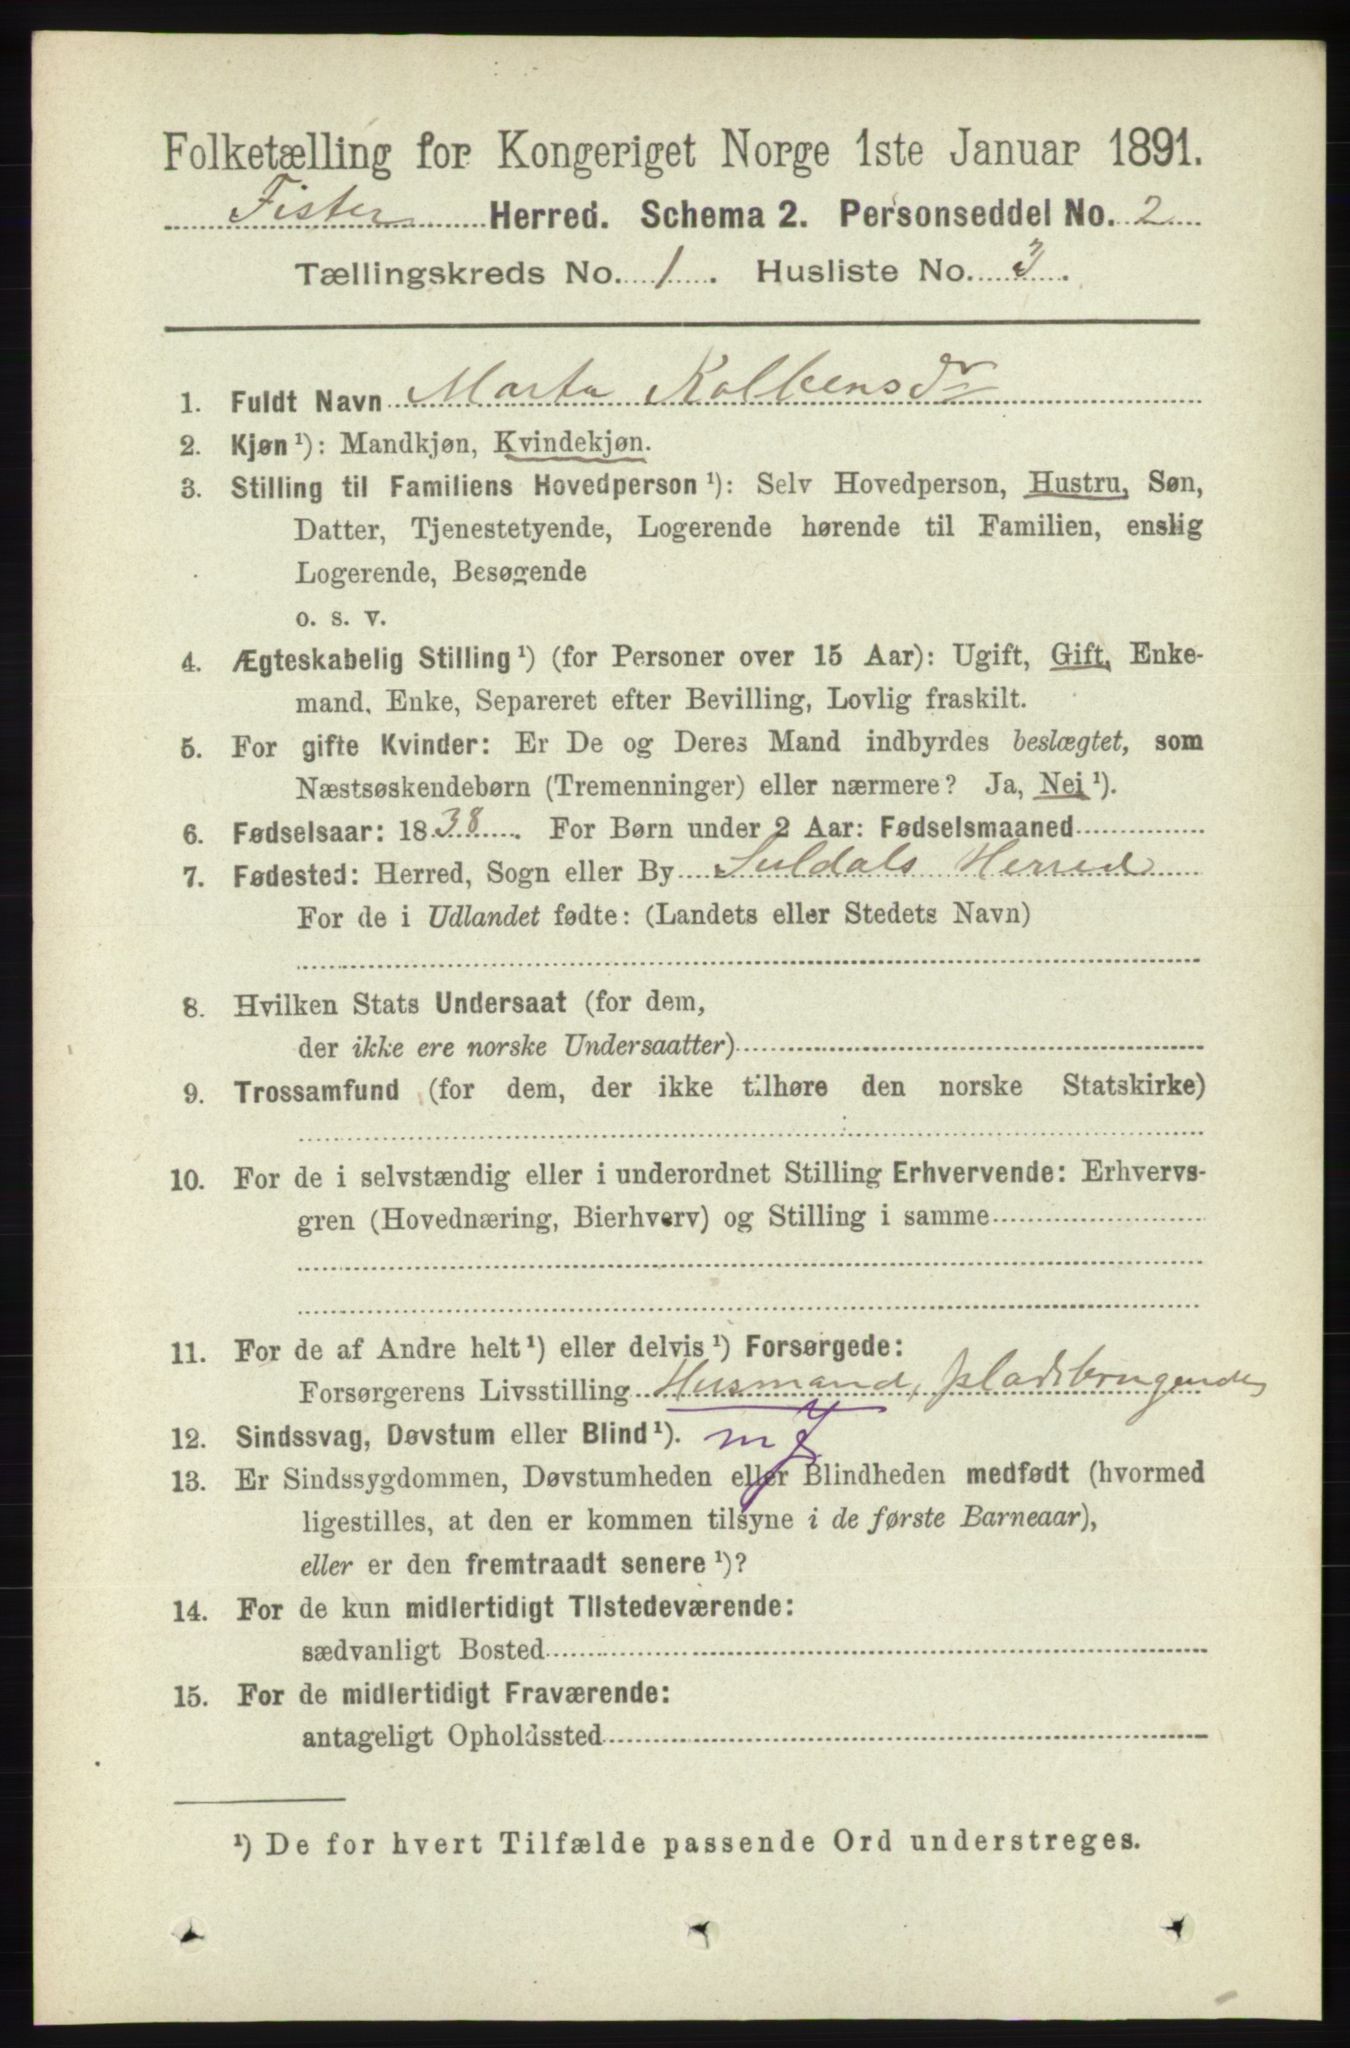 Folketælling for Kongeriget Norge 1ste Januar 1891.
Fister Herred. Schema 2. Personseddel No. 2
Tællingskreds No. 1. Husliste No. 3.
1. Fuldt Navn Marta Kolbensdr
2. Kjøn¹): Mandkjøn, Kvindekjøn.
3. Stilling til Familiens Hovedperson¹): Selv Hovedperson, Hustru, Søn,
Datter, Tjenestetyende, Logerende hørende til Familien, enslig
Logerende, Besøgende
o. s. v.
4. Ægteskabelig Stilling¹) (for Personer over 15 Aar): Ugift, Gift, Enke-
mand, Enke, Separeret efter Bevilling, Lovlig fraskilt.
5. For gifte Kvinder: Er De og Deres Mand indbyrdes beslægtet, som
Næstsøskendebørn (Tremenninger) eller nærmere? Ja, Nei¹).
6. Fødselsaar: 1838. For Børn under 2 Aar: Fødselsmaaned
7. Fødested: Herred, Sogn eller By Suldals Herred
For de i Udlandet fødte: (Landets eller Stedets Navn)
8. Hvilken Stats Undersaat (for dem,
der ikke ere norske Undersaatter)
9. Trossamfund (for dem, der ikke tilhøre den norske Statskirke)
10. For de i selvstændig eller i underordnet Stilling Erhvervende: Erhvervs-
gren (Hovednæring, Bierhverv) og Stilling i samme
11. For de af Andre helt¹) eller delvis¹) Forsørgede:
Forsørgerens Livsstilling Husmand, pladsbrugende
12. Sindssvag, Døvstum eller Blind¹).
13. Er Sindssygdommen, Døvstumheden eller Blindheden medfødt (hvormed
ligestilles, at den er kommen tilsyne i de første Barneaar),
eller er den fremtraadt senere¹)?
14. For de kun midlertidigt Tilstedeværende:
sædvanligt Bosted
15. For de midlertidigt Fraværende:
antageligt Opholdssted
¹) De for hvert Tilfælde passende Ord understreges.